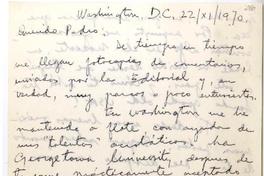 Washington, D.C. 22/XI/1970.
Querido Pedro:
De tiempo en tiempo
me llegan fotocopias de comentarios,
enviados por la Editorial y, en
verdad, muy parcos o poco entusiastas.
En Washington me he
mantenido a flote con ayuda de
mis "talentos" La
Georgetown University, después de